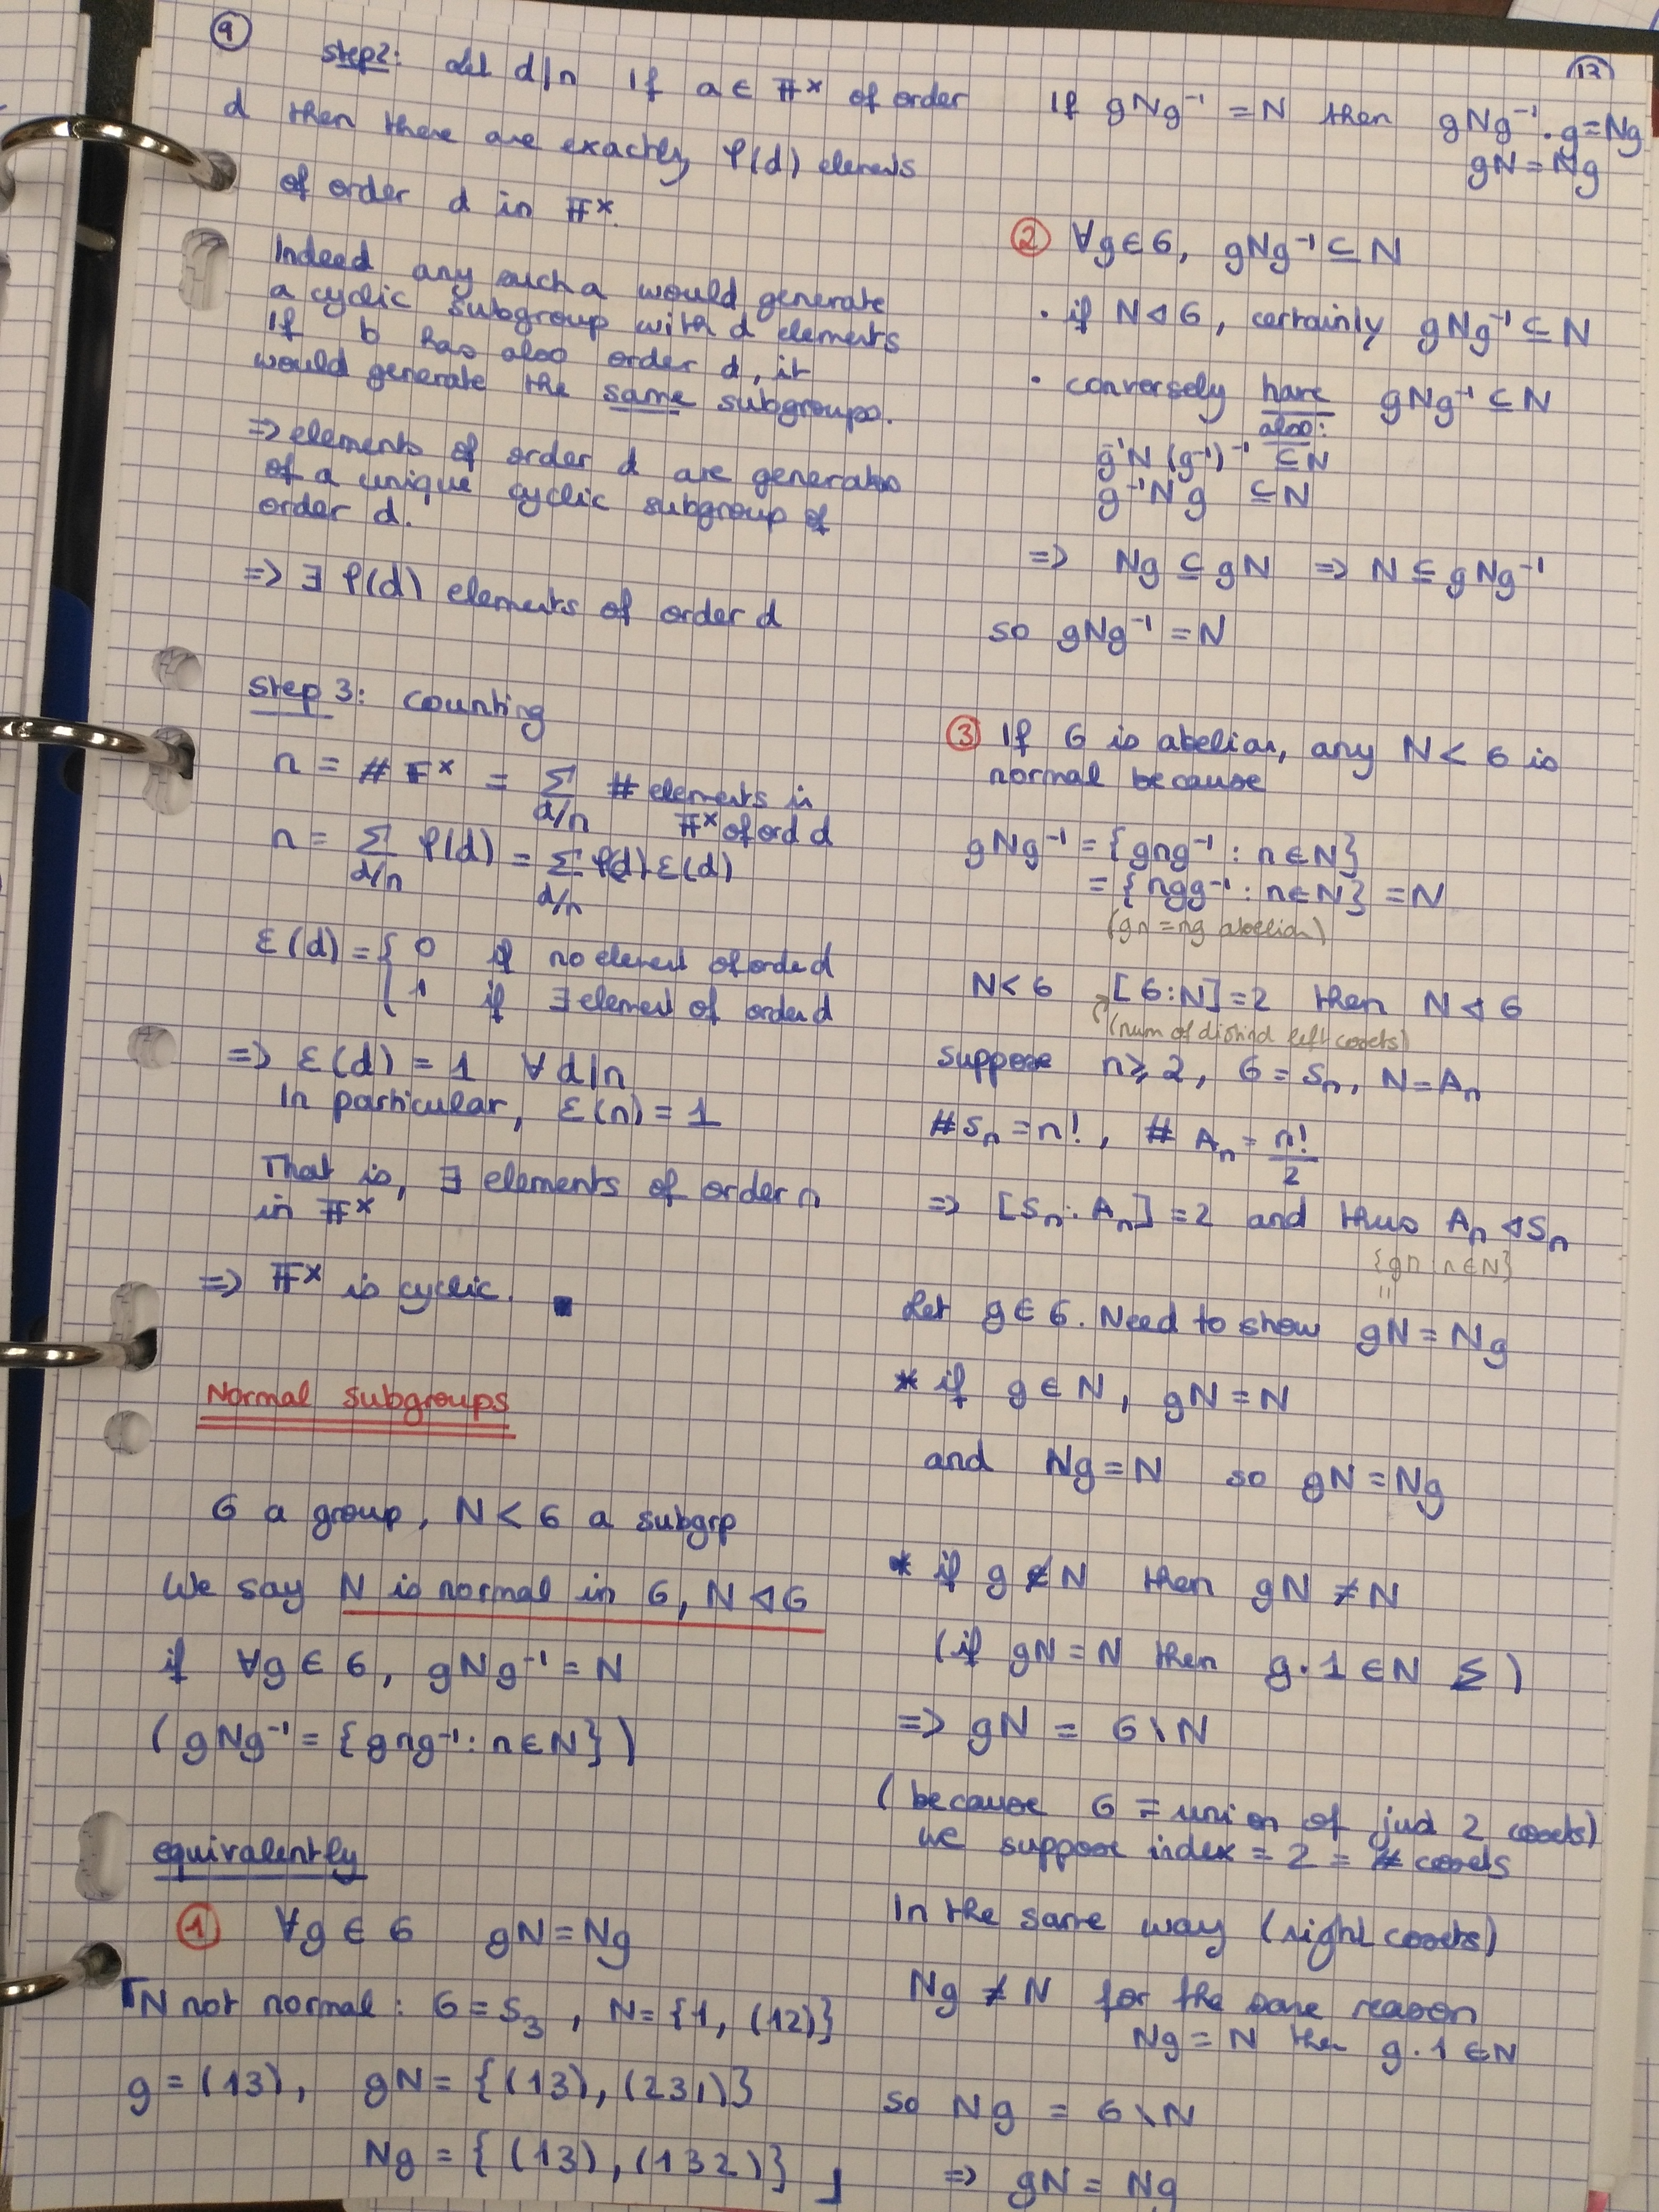 9
step2: Let d|n If a ∈ 𝔽ˣ of order
d then there are exactly φ(d) elements
of order d in 𝔽ˣ.
Indeed any such a would generate
a cyclic subgroup with d elements
If b has also order d, it
would generate the same subgroups.
=> elements of order d are generators
of a unique cyclic subgroup of
order d.
=> ∃ φ(d) elements of order d
step 3: counting
n = # 𝔽ˣ = Σ_{d/n} # elements in 𝔽ˣ of ord d
n = Σ_{d/n} φ(d) = Σ_{d/n} φ(d) ε(d)
ε(d) = { 0 if no element of order d
1 if ∃ element of order d
=> ε(d) = 1 ∀ d|n
In particular, ε(n) = 1
That is, ∃ elements of order n
in 𝔽ˣ
=> 𝔽ˣ is cyclic. ■
Normal subgroups
G a group, N < G a subgrp
We say N is normal in G, N ◁ G
if ∀g ∈ G, gNg⁻¹ = N
(gNg⁻¹ = {gng⁻¹ : n ∈ N})
equivalently
① ∀g ∈ G gN = Ng
⌈N not normal : G = S₃, N = {1, (12)}
g = (13), gN = {(13), (231)}
Ng = {(13), (132)} ⌋
12
If gNg⁻¹ = N then gNg⁻¹·g = Ng
gN = Ng
② ∀g ∈ G, gNg⁻¹ ⊆ N
· if N ◁ G, certainly gNg⁻¹ ⊆ N
· conversely have gNg⁻¹ ⊆ N
also:
g⁻¹N(g⁻¹)⁻¹ ⊆ N
g⁻¹Ng ⊆ N
=> Ng ⊆ gN => N ⊆ gNg⁻¹
so gNg⁻¹ = N
③ If G is abelian, any N < G is
normal because
gNg⁻¹ = {gng⁻¹ : n ∈ N}
= {ngg⁻¹ : n ∈ N} = N
(gn = ng abelian)
N < G [G:N] = 2 then N ◁ G
(num of distinct left cosets)
suppose n ≥ 2, G = Sₙ, N = Aₙ
# Sₙ = n!, # Aₙ = n!/2
=> [Sₙ : Aₙ] = 2 and thus Aₙ ◁ Sₙ
{gn : n ∈ N}
"
Let g ∈ G. Need to show gN = Ng
* if g ∈ N, gN = N
and Ng = N so gN = Ng
* if g ∉ N then gN ≠ N
(if gN = N then g·1 ∈ N ⨳)
=> gN = G \ N
(because G = union of just 2 cosets)
we suppose index = 2 = # cosets
In the same way (right cosets)
Ng ≠ N for the same reason
Ng = N then g·1 ∈ N
so Ng = G \ N
=> gN = Ng